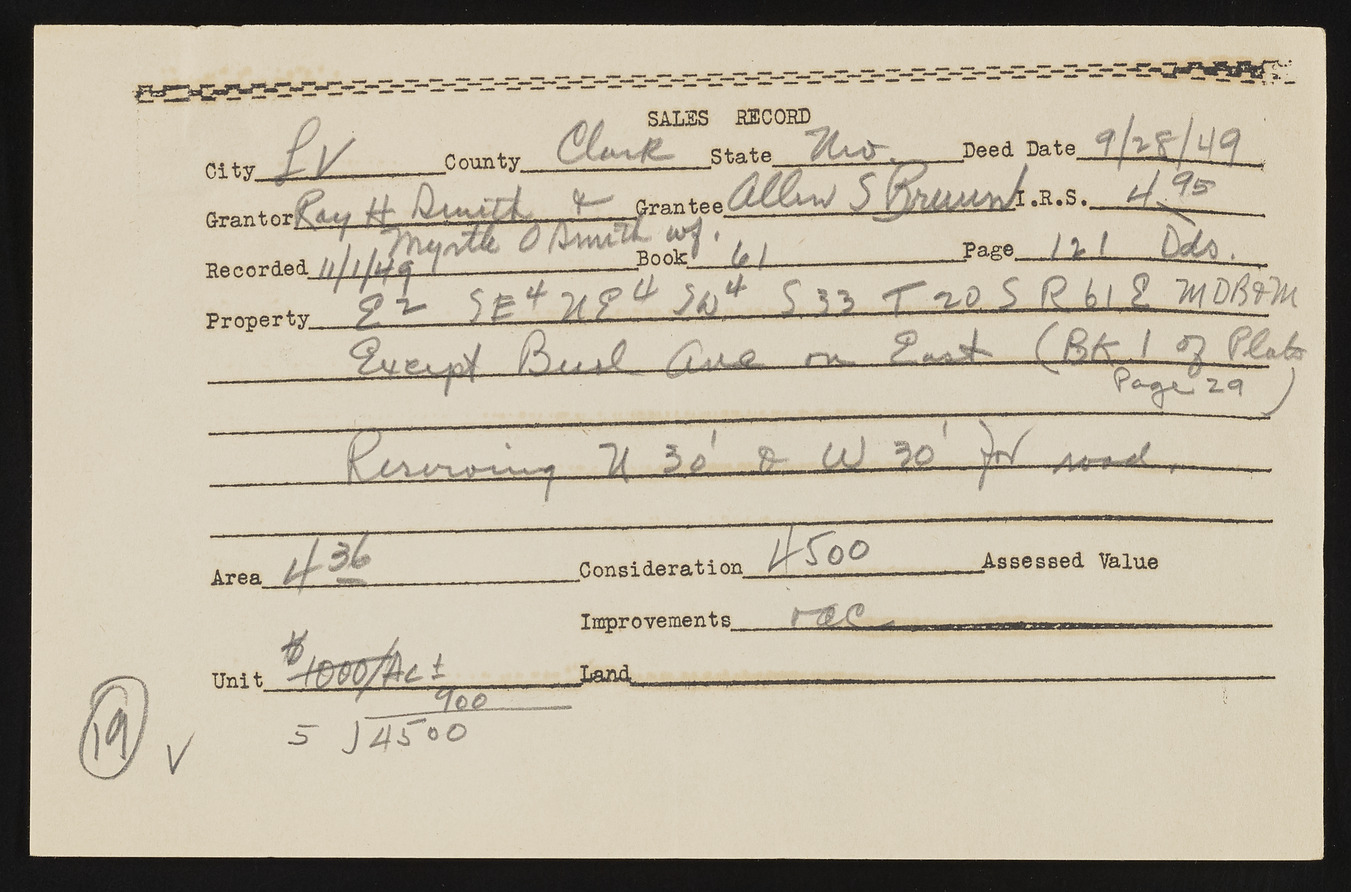 SALES RECORD
City LV County Clark State Nev. Deed Date 9/28/49
Grantor Ray H Smith & Grantee Allen S I.R.S. 4.95
Myrtle O Smith wf.
Recorded 11/1/49 Book 61 Page 121 Dds.
Property E2 SE4 NE4 SW4 S 33 T 20 S R 61 E MDB&M
Except Ave on East (BK 1 of Plats
Page 29)
Reserving N 30' & W 30' for road.
Area 4 36 Consideration 4500 Assessed Value
Improvements vac
Unit $1000/Ac ± Land
900
5 )4500
19 V